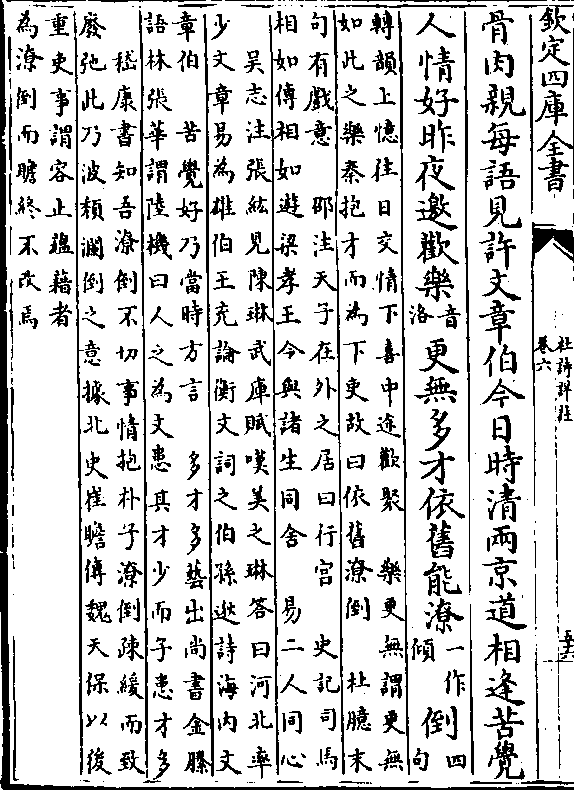 欽定四庫全書
杜詩詳註
卷六
骨肉親每語見許文章伯今日時清兩京道相逢苦覺
人情好昨夜邀歡樂音洛更無多才依舊能潦一作傾倒四句
轉韻上憶往日交情下喜中途歡聚　樂更無謂更無
如此之樂秦抱才而為下吏故曰依舊潦倒　杜臆末
句有戲意　邵注天子在外之居曰行宮　史記司馬
相如傳相如遊梁孝王令與諸生同舍　易二人同心
吳志注張紘見陳琳武庫賦嘆美之琳答曰河北率
少文章易為雄伯王充論衡文詞之伯孫逖詩海內文
章伯　苦覺好乃當時方言　多才多藝出尚書金縢
語林張華謂陸機曰人之為文患其才少而子患才多
嵇康書知吾潦倒不切事情抱朴子潦倒疎緩而致
廢弛此乃波頹瀾倒之意據北史崔瞻傳魏天保以後
重吏事謂容止蘊藉者
為潦倒而瞻終不改焉